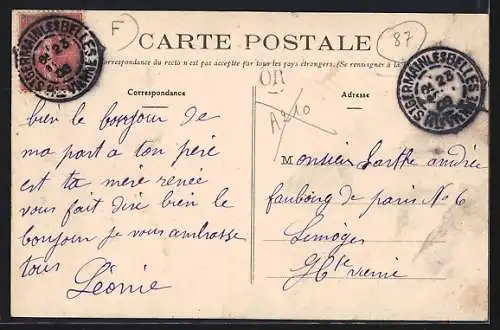 F
87
CARTE POSTALE
Correspondance du recto n'est pas acceptée par tous les pays étrangers. (Se renseigner à la
OR
A210
Correspondance
Adresse
ST GERMAIN LES BELLES
23
HTE VIENNE
ST GERMAIN LES BELLES
23
HTE VIENNE
bien le bonjour de
ma part a ton père
est ta mère renée
vous fait dire bien le
bonjour je vous ambrasse
tous
Léonie
Monsieur Barthe andrée
faubourg de paris No 6
Limoges
Hte vienne